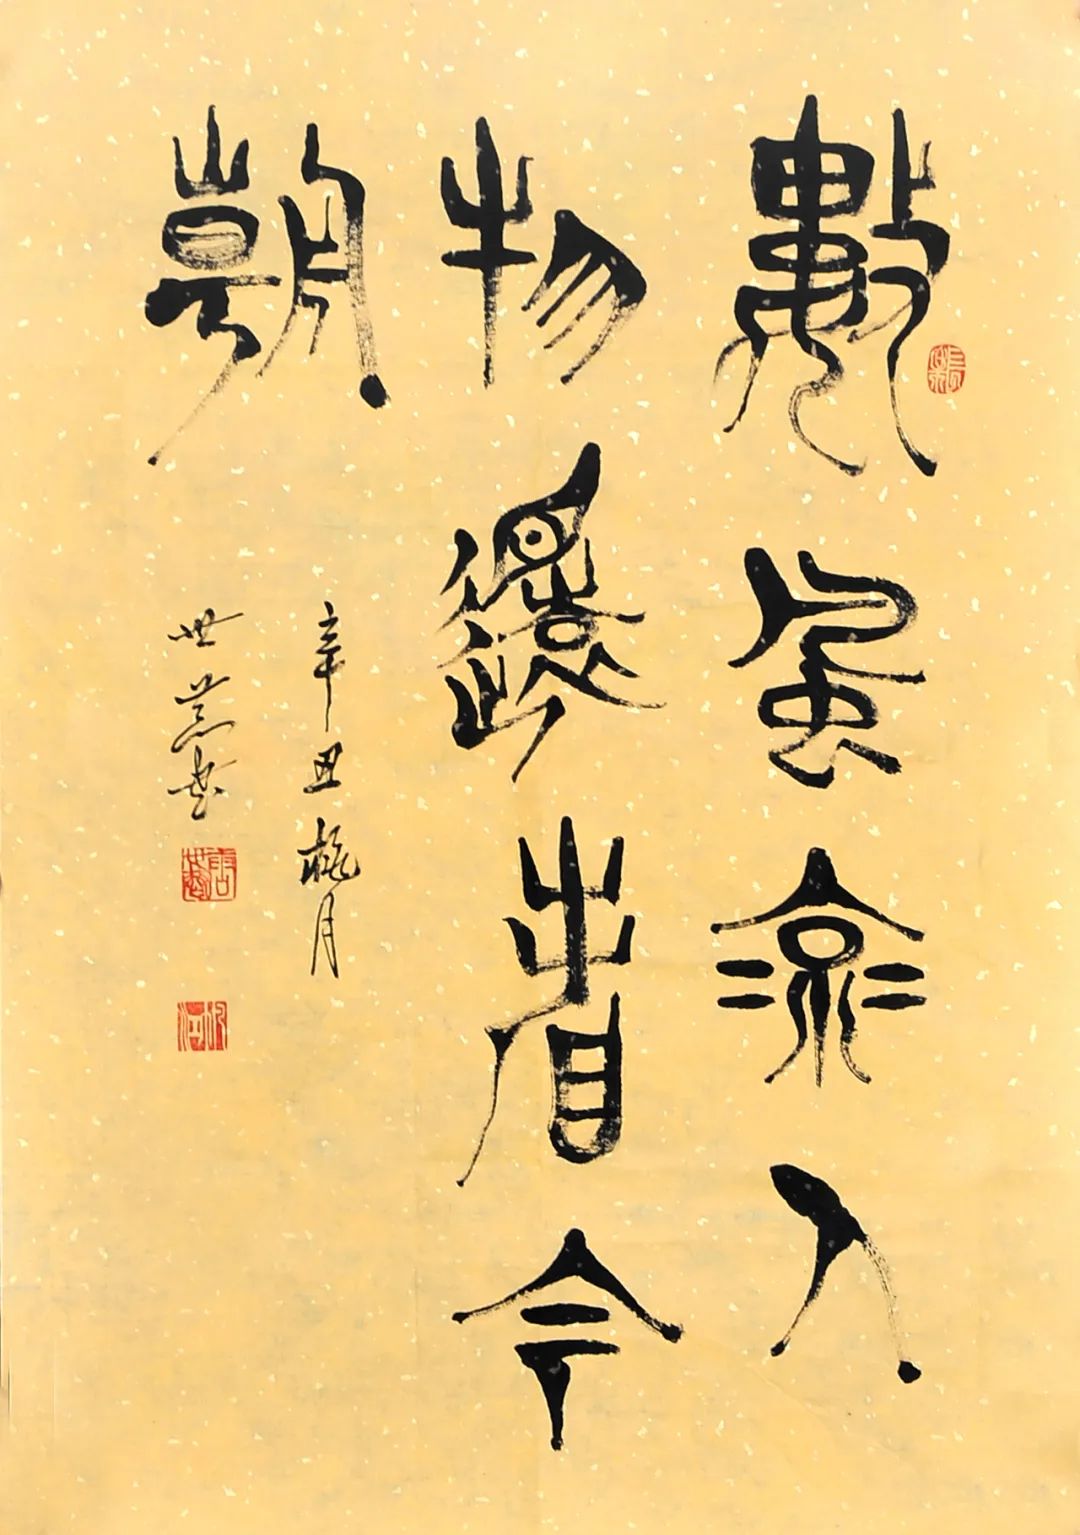 數風流人
物還看今
朝
辛丑桃月
世书